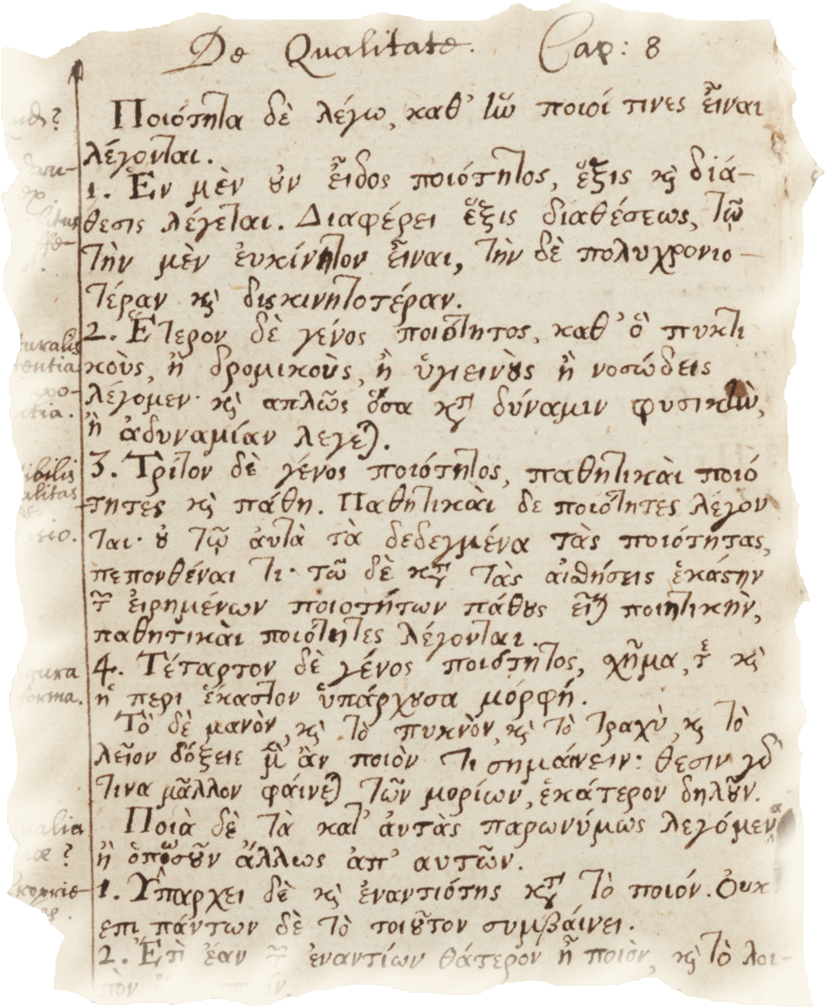 De Qualitate. Cap: 8
Ποιότητα δὲ λέγω, καθ' ἣν ποιοί τινες εἶναι
λέγονται.
1. Ἓν μὲν ȣν εἶδος ποιότητος, ἕξις ϗ διά-
θεσις λέγεται. Διαφέρει ἕξις διαθέσεως, τῷ
τὴν μὲν ἐυκίνητον εἶναι, τὴν δὲ πολυχρονιο-
τέραν ϗ δυσκινητοτέραν.
2. Ἕτερον δὲ γένος ποιότητος, καθ' ὃ πυκτι
κοὺς, ἢ δρομικοὺς, ἢ ὑγιεινȣ̀ς ἢ νοσώδεις
λέγομεν· ϗ απλῶς ὅσα κατὰ δύναμιν φυσικὴν,
ἢ ἀδυναμίαν λεγεται.
3. Τρίτον δὲ γένος ποιότητος, παθητικὰι ποιό
τητες ϗ πάθη. Παθητικὰι δε ποιότητες λέγον
ται· ȣ τῷ ἀυτὰ τὰ δεδεγμένα τὰς ποιότητας,
πεπονθέναι τι· τῶ δὲ κατὰ τὰς αἰσθήσεις ἑκάστην
τῶν ἐιρημένων ποιοτήτων πάθȣς εἶναι ποιητικὴν,
παθητικὰι ποιότητες λέγονται.
4. Τέταρτον δὲ γένος ποιότητος, χῆμα, τε ϗ
ἡ περι ἕκαστον ὑπάρχȣσα μόρφή.
Τὸ δὲ μανὸν, ϗ τὸ πυκνὸν, ϗ τὸ τραχὺ, ϗ τὸ
λεῖον δόξειε μὲν ἂν ποιὸν τι σημάινειν: θεσιν γὸ
τινα μᾶλλον φάινεται τῶν μορίων, ἑκάτερον δηλȣ͂ν.
Ποιὰ δὲ τὰ κατ' ἀυτὰς παρωνύμως λεγόμενα
ἢ ὁπωσοῦν ἄλλως ἀπ' αυτῶν.
1. Ὑπαρχει δὲ ϗ ἐναντιότης κατὰ τὸ ποιόν. Ὀυκ
επι πάντων δὲ τὸ τοιȣ͂τον συμβάινει.
2. Ἔτι ἐαν τῶν ἐναντίων θάτερον ἦ ποιὸν, ϗ τὸ λοι-
πὸν